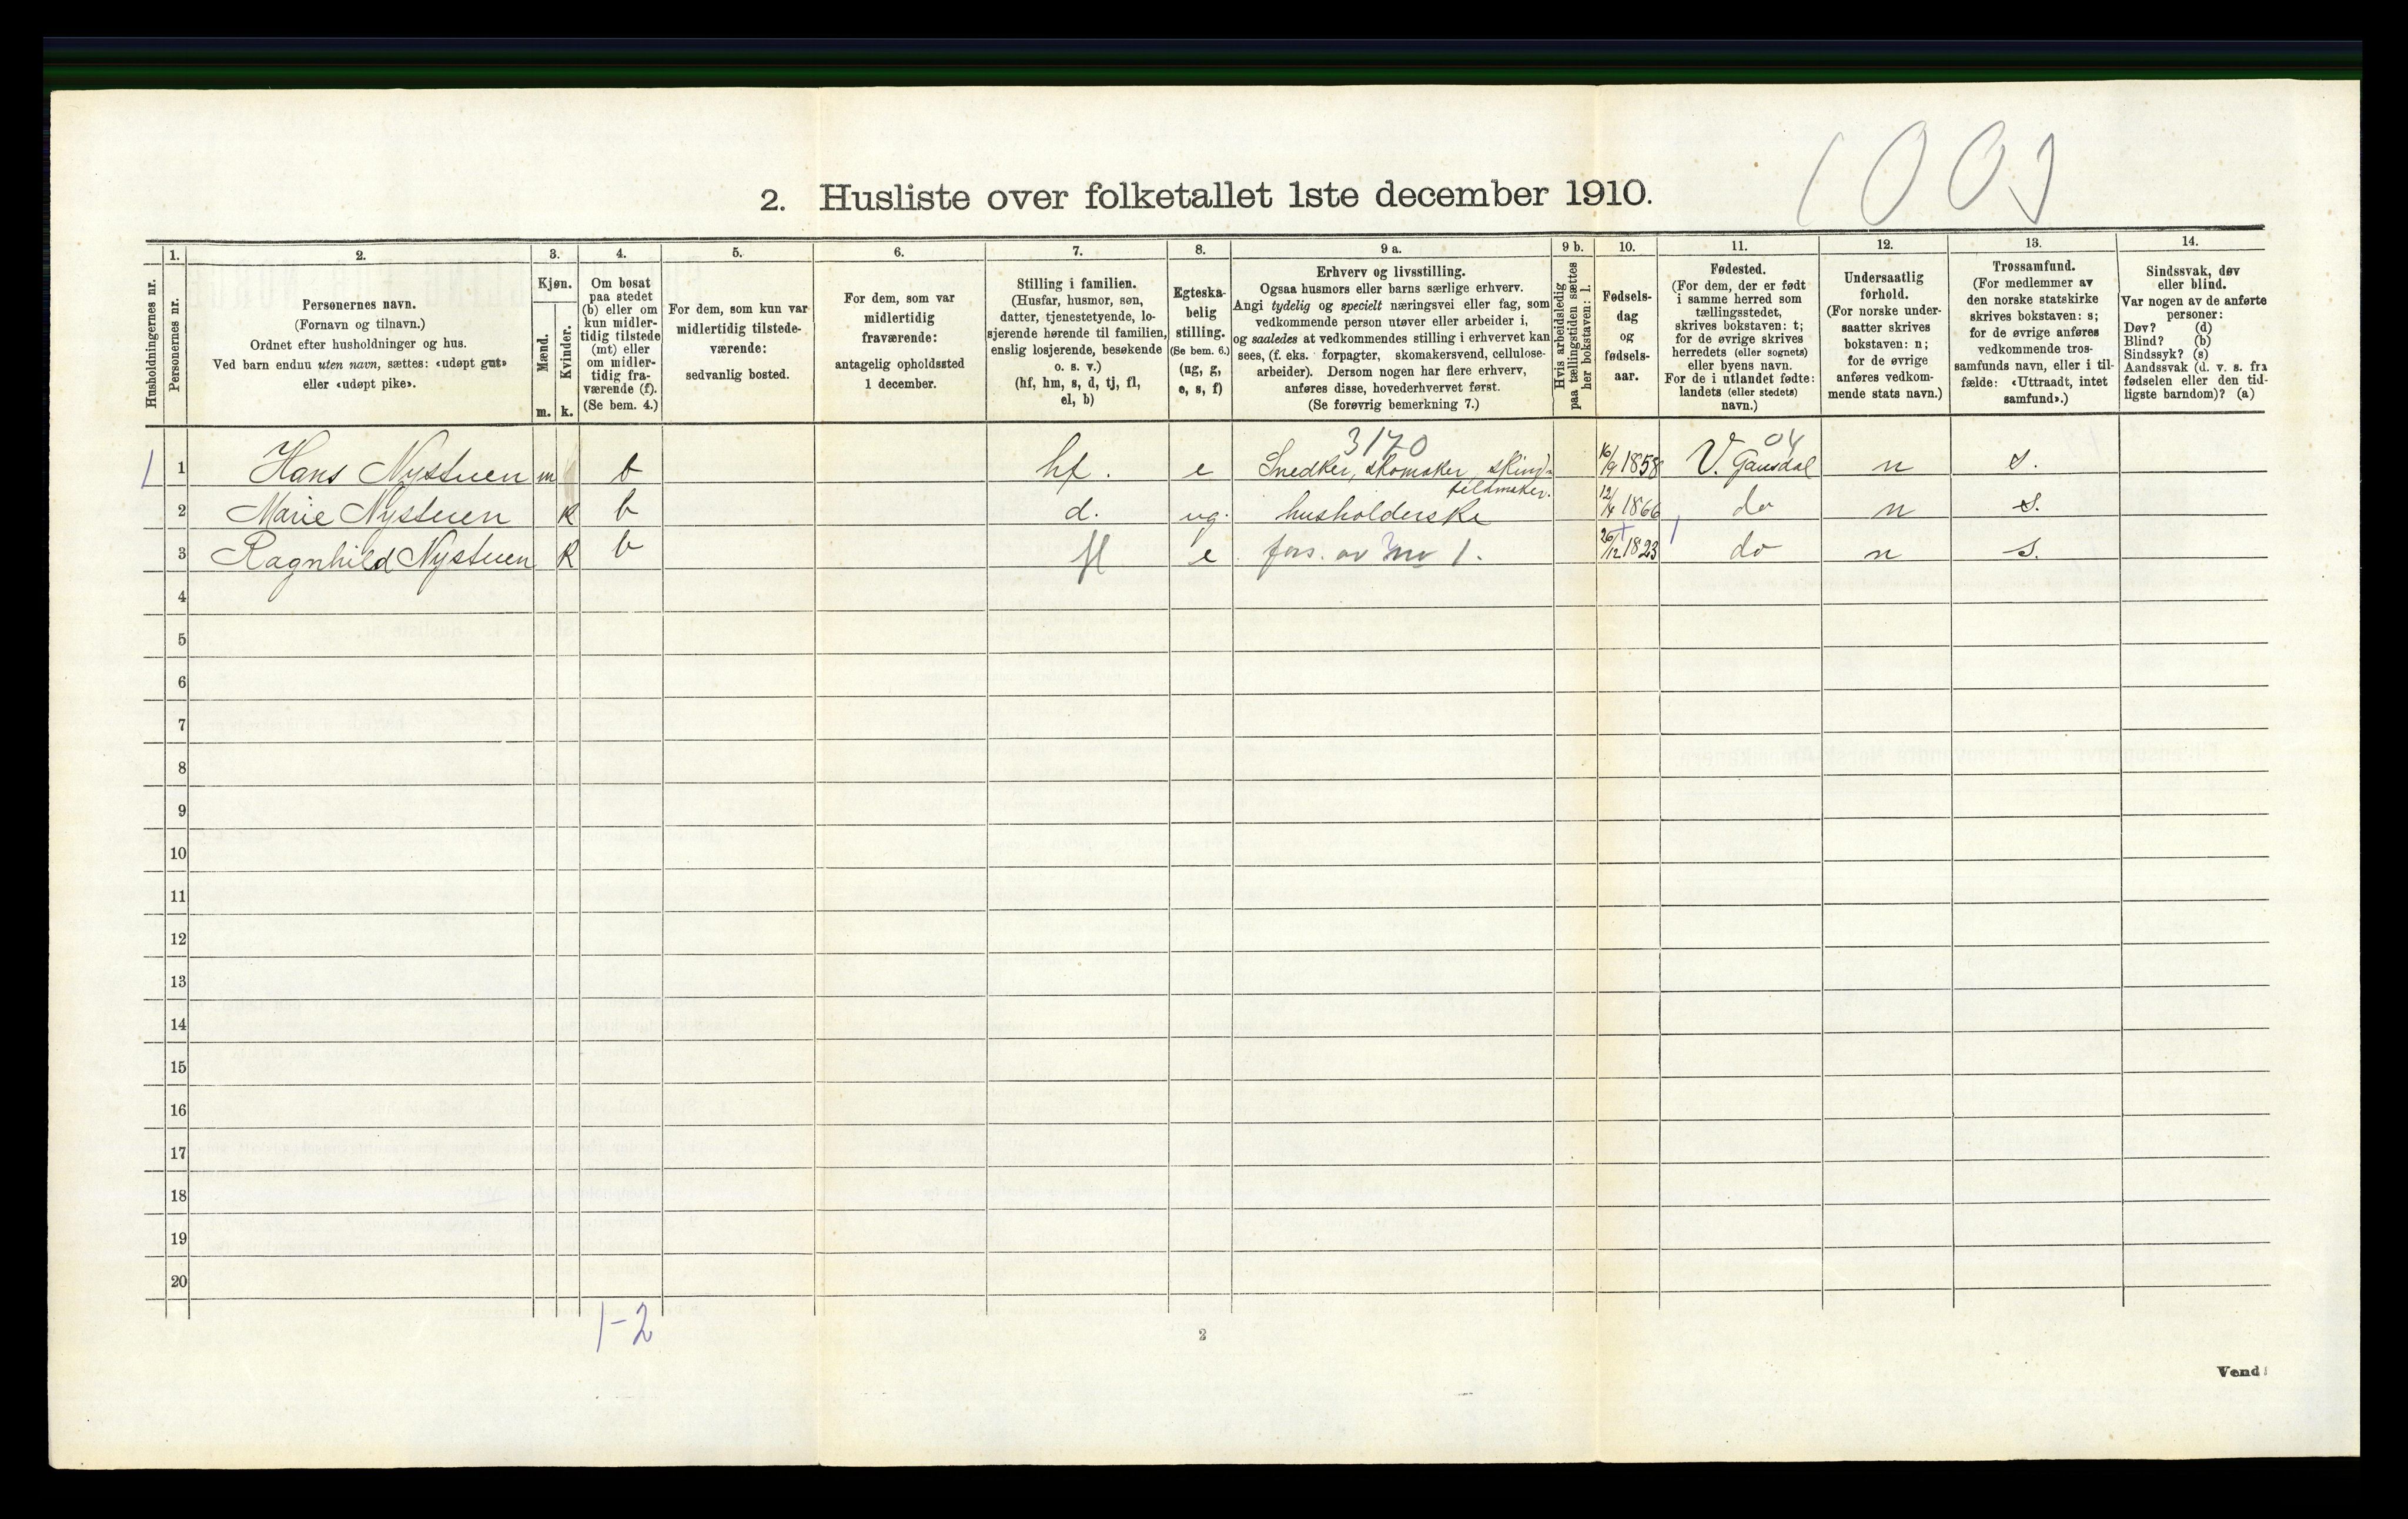 2. Husliste over folketallet 1ste december 1910.
Husholdningernes nr.
1.
Personernes nr.
2.
Personernes navn.
(Fornavn og tilnavn.)
Ordnet efter husholdninger og hus.
Ved barn endnu uten navn, sættes: «udøpt gut»
eller «udøpt pike».
3.
Kjøn.
Mænd.
Kvinder.
m. k.
4.
Om bosat
paa stedet
(b) eller om
kun midler-
tidig tilstede
(mt) eller
om midler-
tidig fra-
værende (f).
(Se bem. 4.)
5.
For dem, som kun var
midlertidig tilstede-
værende:
sedvanlig bosted.
6.
For dem, som var
midlertidig
fraværende:
antagelig opholdssted
1 december.
7.
Stilling i familien.
(Husfar, husmor, søn,
datter, tjenestetyende, lo-
sjerende hørende til familien,
enslig losjerende, besøkende
o. s. v.)
(hf, hm, s, d, tj, fl,
el, b)
8.
Egteska-
belig
stilling.
(Se bem. 6.)
(ug, g,
e, s, f)
9 a.
Erhverv og livsstilling.
Ogsaa husmors eller barns særlige erhverv.
Angi tydelig og specielt næringsvei eller fag, som
vedkommende person utøver eller arbeider i,
og saaledes at vedkommendes stilling i erhvervet kan
sees, (f. eks. forpagter, skomakersvend, cellulose-
arbeider). Dersom nogen har flere erhverv,
anføres disse, hovederhvervet først.
(Se forøvrig bemerkning 7.)
9 b.
Hvis arbeidsledig
paa tællingstiden sættes
her bokstaven: l.
10.
Fødsels-
dag
og
fødsels-
aar.
11.
Fødested.
(For dem, der er født
i samme herred som
tællingsstedet,
skrives bokstaven: t;
for de øvrige skrives
herredets (eller sognets)
eller byens navn.
For de i utlandet fødte:
landets (eller stedets)
navn.)
12.
Undersaatlig
forhold.
(For norske under-
saatter skrives
bokstaven: n;
for de øvrige
anføres vedkom-
mende stats navn.)
13.
Trossamfund.
(For medlemmer av
den norske statskirke
skrives bokstaven: s;
for de øvrige anføres
vedkommende tros-
samfunds navn, eller i til-
fælde: «Uttraadt, intet
samfund».)
14.
Sindssvak, døv
eller blind.
Var nogen av de anførte
personer:
Døv? (d)
Blind? (b)
Sindssyk? (s)
Aandssvak (d. v. s. fra
fødselen eller den tid-
ligste barndom)? (a)
3170 04
1 1 Hans Nystuen m b hf. e Snedker, skomaker, skind- 16/9 1858 V. Gausdal n s.
feldmaker.
2 Marie Nystuen k b d. ug. husholderske 1866 do n s.
3 Ragnhild Nystuen k b fl e fors. av nr 1. 26/12 1823 do n s.
4
5
6
7
8
9
10
11
12
13
14
15
16
17
18
19
20
1-2
2
Vend